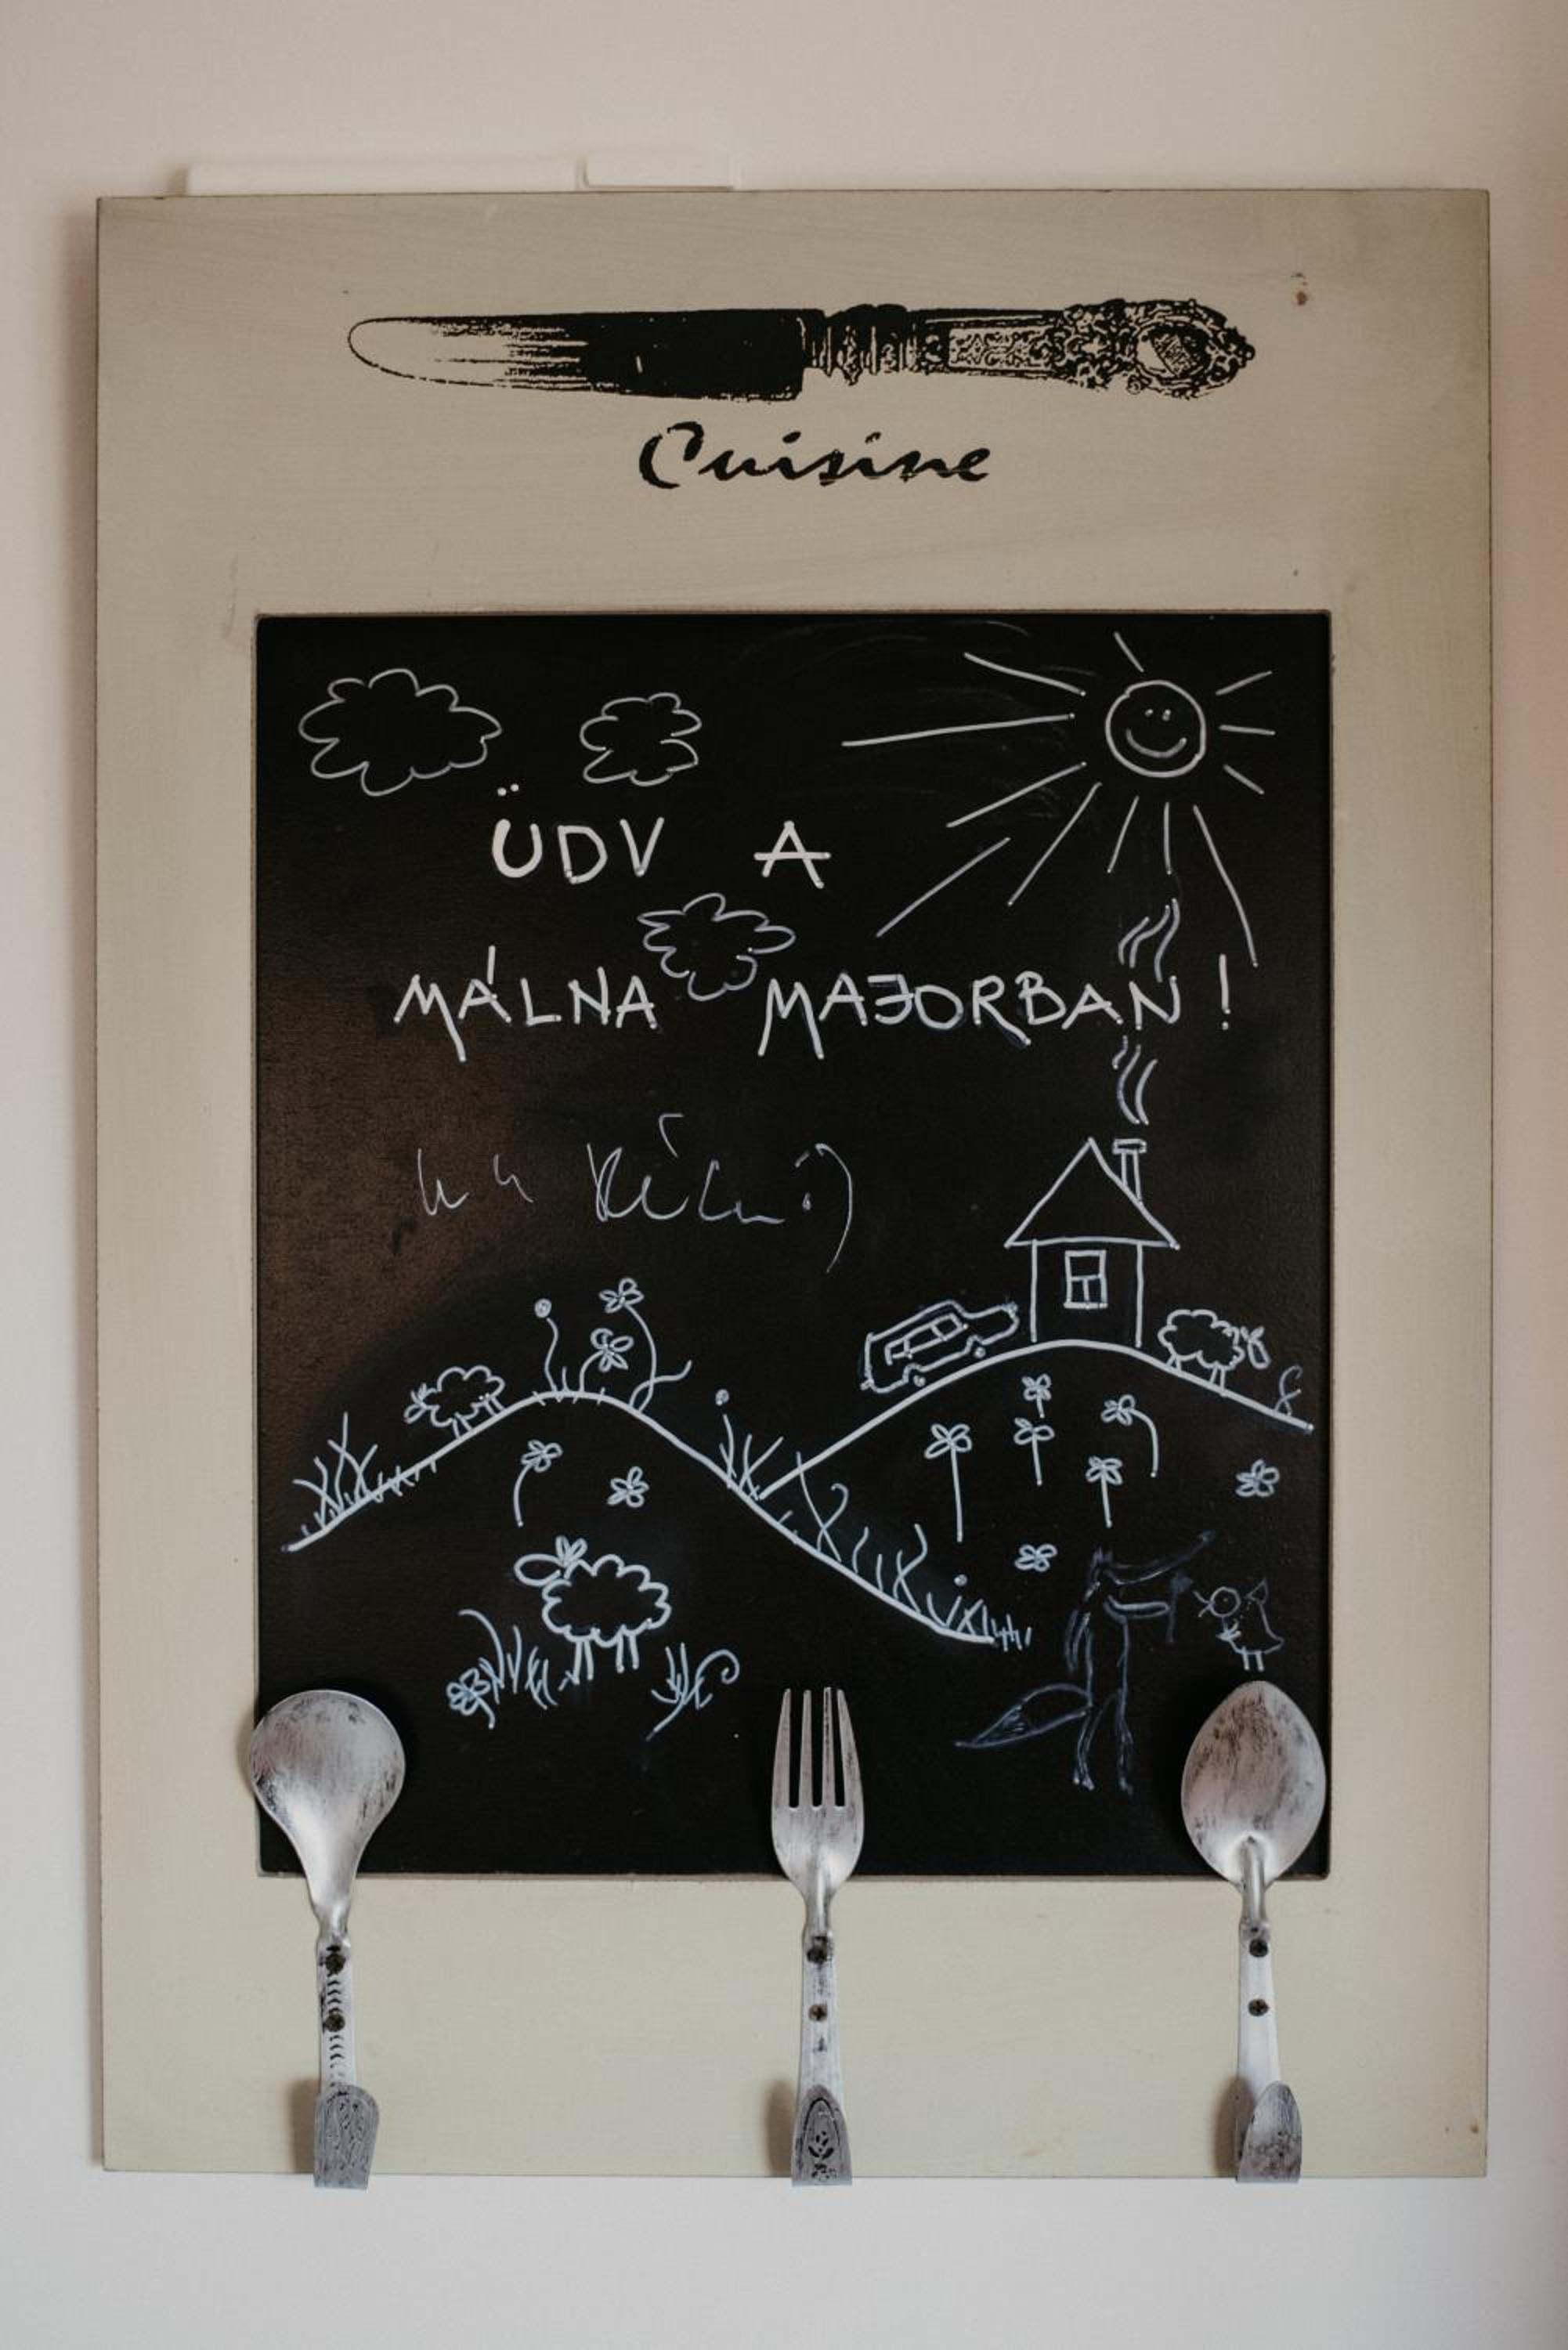 Cuisine
ÜDV A
MÁLNA MAJORBAN!
:)